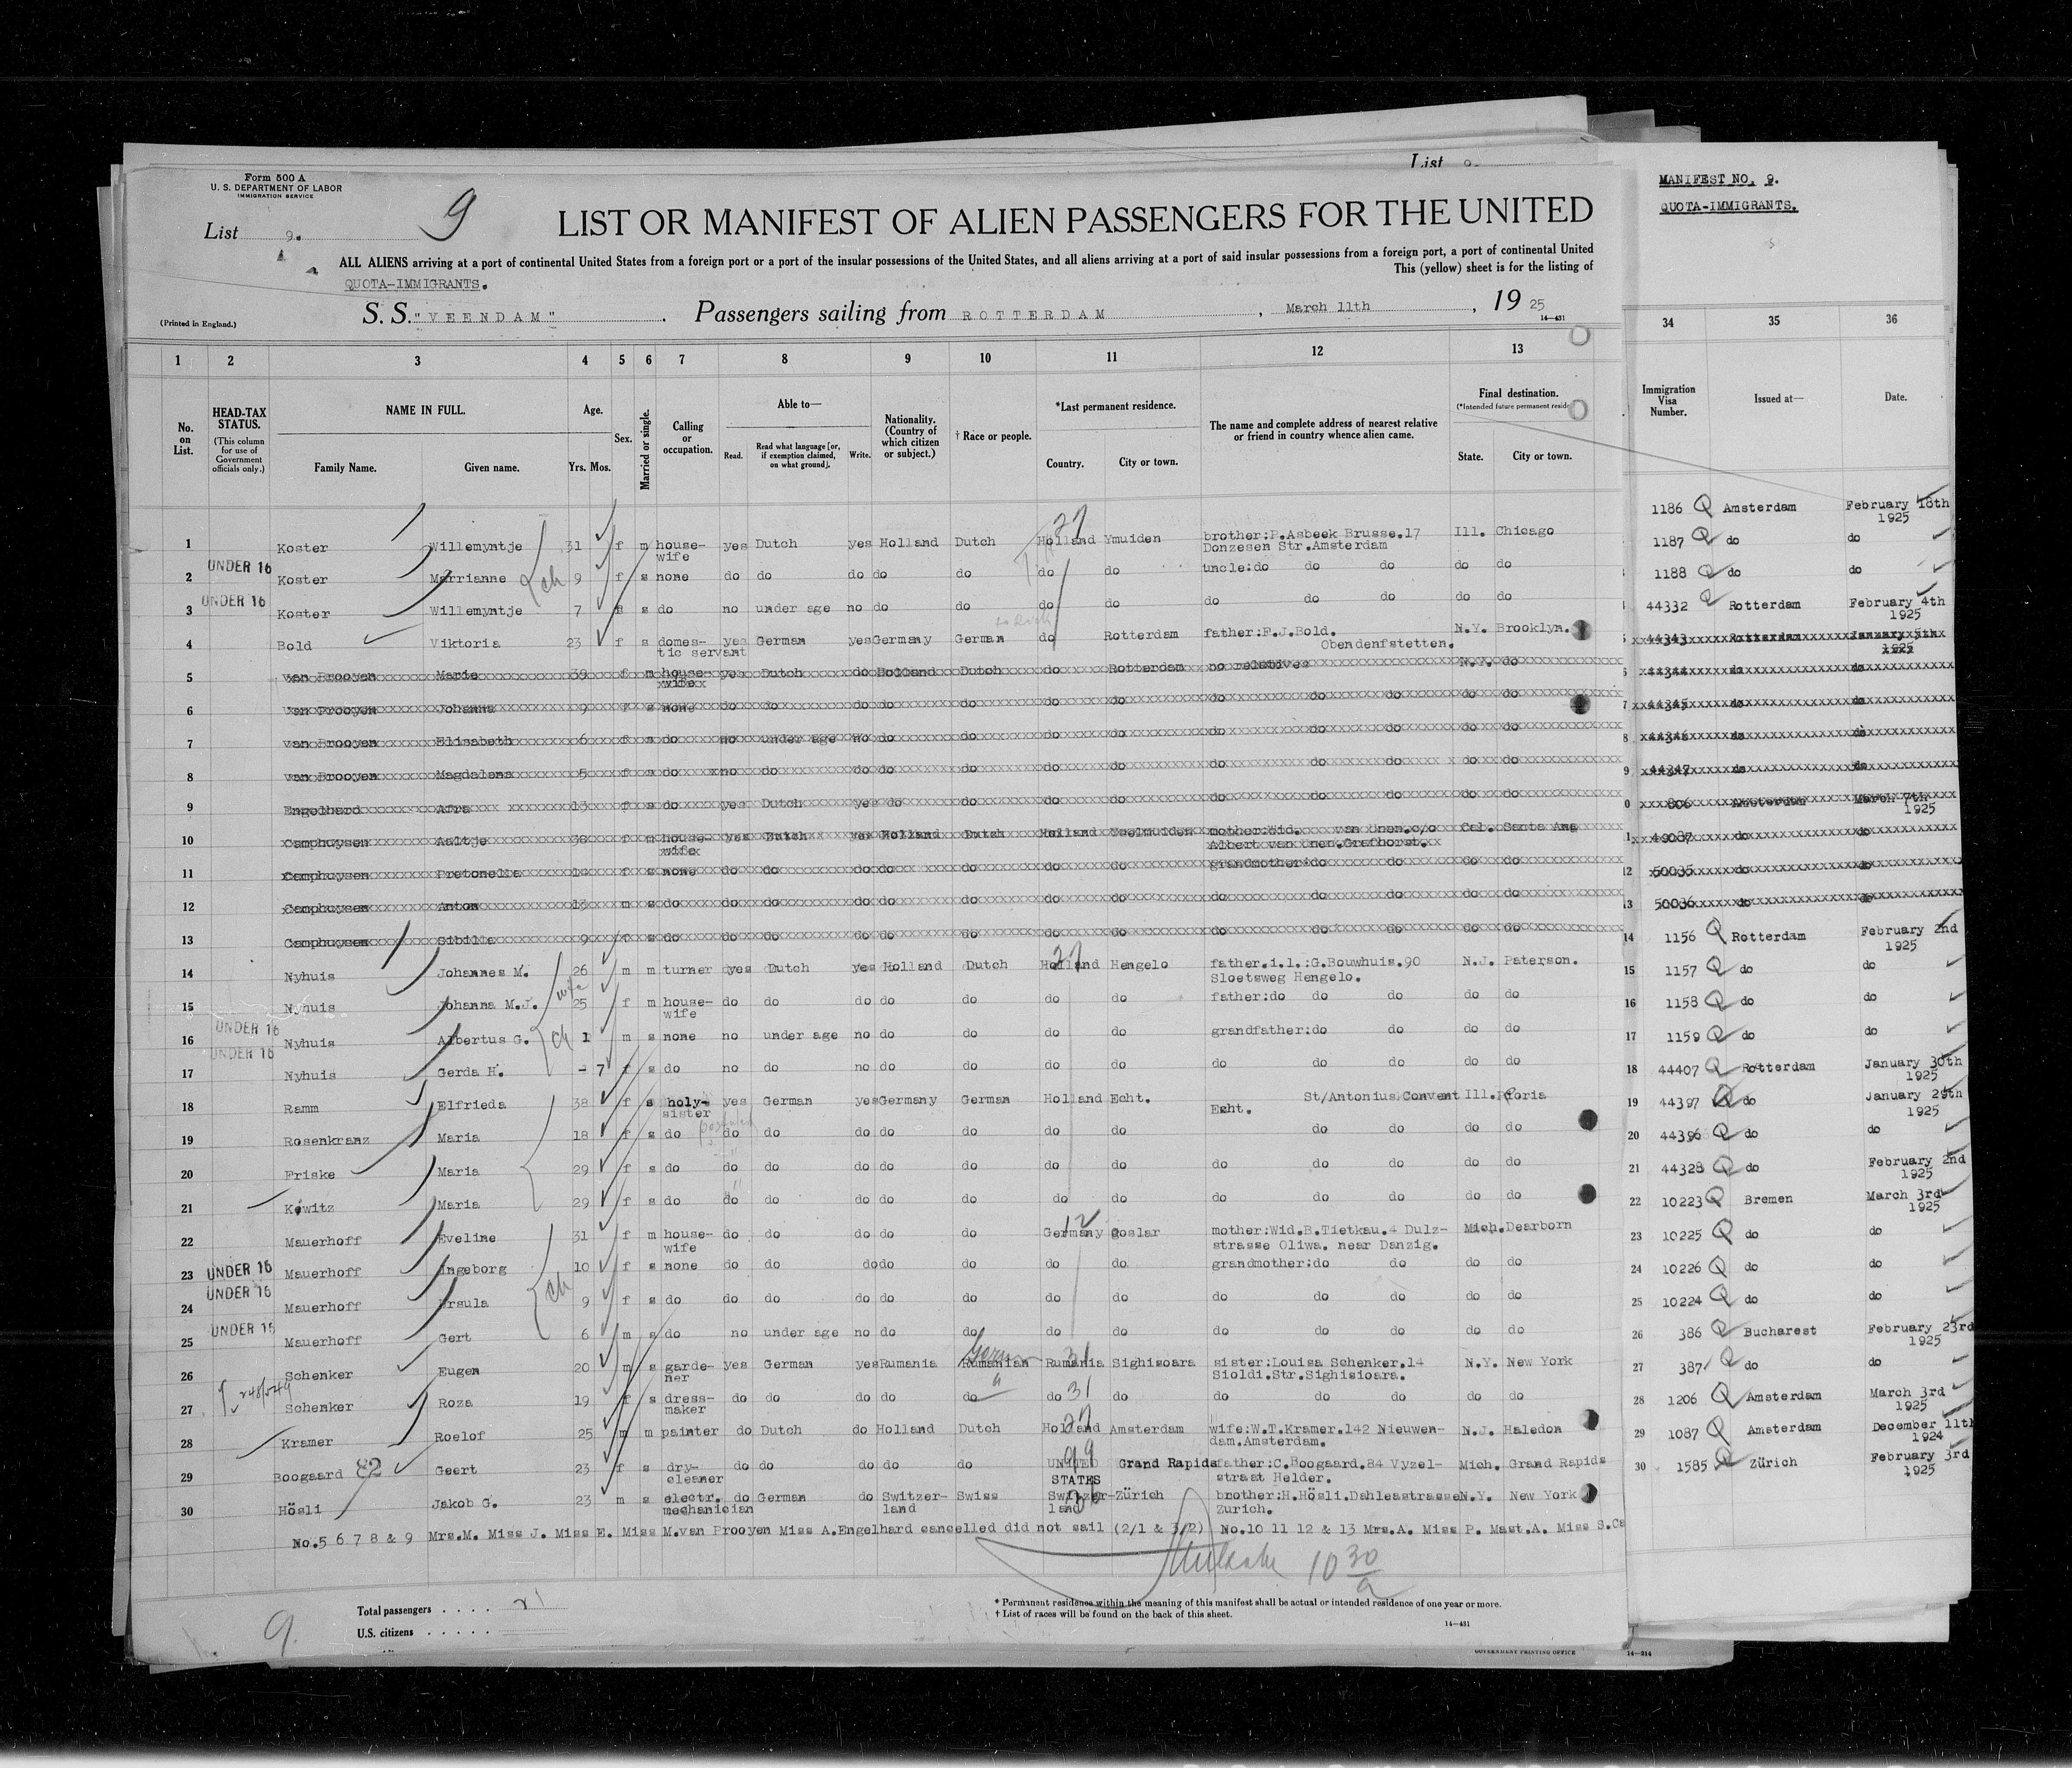 List 9.
Form 500 A
U. S. DEPARTMENT OF LABOR
IMMIGRATION SERVICE
List 9. 9
LIST OR MANIFEST OF ALIEN PASSENGERS FOR THE UNITED
ALL ALIENS arriving at a port of continental United States from a foreign port or a port of the insular possessions of the United States, and all aliens arriving at a port of said insular possessions from a foreign port, a port of continental United
This (yellow) sheet is for the listing of
QUOTA-IMMIGRANTS.
(Printed in England.)
S. S. "VEENDAM" . Passengers sailing from ROTTERDAM , March 11th , 19 25
14—431
1 2 3 4 5 6 7 8 9 10 11 12 13
No. on List.
HEAD-TAX STATUS.
(This column for use of Government officials only.)
NAME IN FULL.
Family Name. Given name.
Age.
Yrs. Mos.
Sex.
Married or single.
Calling or occupation.
Able to—
Read. Read what language [or, if exemption claimed, on what ground]. Write.
Nationality. (Country of which citizen or subject.)
† Race or people.
*Last permanent residence.
Country. City or town.
The name and complete address of nearest relative or friend in country whence alien came.
Final destination.
(*Intended future permanent reside
State. City or town.
1 Koster Willemyntje 31 f m house-wife yes Dutch yes Holland Dutch Holland Ymuiden brother:P.Asbeek Brusse.17 Donzesen Str.Amsterdam Ill. Chicago
27
2 UNDER 16 Koster Marrianne ch 9 f s none do do do do do do do uncle:do do do do do
3 UNDER 16 Koster Willemyntje 7 s do no under age no do do do do do do do do do
4 Bold Viktoria 23 f s domes-tic servant yes German yes Germany German do Rotterdam father:F.J.Bold. Obendenfstetten. N.Y. Brooklyn.
5 van Prooyen Marie 39 f m house-wife yes Dutch do Holland Dutch do Rotterdam no relatives N.Y. do
6 van Prooyen Johanna 9 f s none do do do do do do do do do do do do
7 van Prooyen Elisabeth 6 f s do no under age no do do do do do do do do do
8 van Prooyen Magdalena 5 f s do no do do do do do do do do do do do
9 Engelhard Afra 13 f s do yes Dutch yes do do do do do do do do do
10 Camphuysen Aaltje 38 f m house-wife yes Dutch yes Holland Dutch Holland Yselmuiden mother:Wid. van Unen.c/o Albert van Unen.Grafhorst. Cal. Santa Ana
11 Camphuysen Pretonella 14 f s none do do do do do do do grandmother:do do do do do
12 Camphuysen Anton 13 m s do do do do do do do do do do do do do
13 Camphuysen Sibilla 9 f s do do do do do do do do do do do do do
14 Nyhuis Johannes M. 26 m m turner yes Dutch yes Holland Dutch Holland Hengelo father.i.l.:G.Bouwhuis.90 Sloetsweg Hengelo. N.J. Paterson.
27
15 Nyhuis Johanna M.J. wife 25 f m house-wife do do do do do do do father:do do do do do
16 UNDER 16 Nyhuis Albertus G. ch 1 m s none no under age no do do do do grandfather:do do do do
17 UNDER 16 Nyhuis Gerda H. - 7 f s do no do no do do do do do do do do do
18 Ramm Elfrieda 38 f s holy-sister yes German yes Germany German Holland Echt. St/Antonius Convent Echt. Ill. Peoria
19 Rosenkranz Maria 18 f s do do do do do do do do do do do do
20 Friske Maria 29 f s do do do do do do do do do do do do do
21 Kewitz Maria 29 f s do do do do do do do do do do do do do
22 Mauerhoff Eveline 31 f m house-wife do do do do do Germany goslar mother:Wid.R.Tietkau.4 Dulz-strasse Oliwa. near Danzig. Mich. Dearborn
12
23 UNDER 16 Mauerhoff Ingeborg 10 f s none do do do do do do do grandmother:do do do do
24 UNDER 16 Mauerhoff Ursula ch 9 f s do do do do do do do do do do do do do
25 UNDER 16 Mauerhoff Gert 6 m s do no under age no do do do do do do do do do
26 Schenker Eugen 20 m s garde-ner yes German yes Rumania Rumanian German Rumania Sighisoara sister:Louisa Schenker.14 Sioldi.Str.Sighisioara. N.Y. New York
31
27 Schenker Roza 19 f s dress-maker do do do do do do 31 do do do do do do
28 Kramer Roelof 25 m m painter do Dutch do Holland Dutch Holland Amsterdam wife:W.T.Kramer.142 Nieuwen-dam.Amsterdam. N.J. Haledon
27
29 Boogaard 82 Geert 23 f s dry-cleaner do do do do do UNITED STATES 99 Grand Rapids father:C.Boogaard.84 Vyzel-straat Helder. Mich. Grand Rapids
30 Hösli Jakob G. 23 m s electr. mechanician do German do Switzer-land Swiss Switzer-land Zürich brother:H.Hösli.Dahleastrasse Zurich. N.Y. New York
No.5 6 7 8 & 9 Mrs.M. Miss J. Miss E. Miss M.van Prooyen Miss A.Engelhard cancelled did not sail (2/1 & 3/2) No.10 11 12 & 13 Mrs.A. Miss P. Mast.A. Miss S.Ca
10 30/a
Total passengers . . . . 21
U.S. citizens . . . . .
9.
* Permanent residence within the meaning of this manifest shall be actual or intended residence of one year or more.
† List of races will be found on the back of this sheet.
14—431
GOVERNMENT PRINTING OFFICE
14—214
MANIFEST NO. 9.
QUOTA-IMMIGRANTS.
34 35 36
Immigration Visa Number. Issued at— Date.
1186 Q Amsterdam February 18th 1925
1187 Q do do
1188 Q do do
44332 Q Rotterdam February 4th 1925
44343 Rotterdam January 5th 1925
44344 do do
7 44345 do do
8 44346 do do
9 44347 do do
0 806 Amsterdam March 7th 1925
1 49087 do do
12 50035 do do
13 50036 do do
14 1156 Q Rotterdam February 2nd 1925
15 1157 Q do do
16 1158 Q do do
17 1159 Q do do
18 44407 Q Rotterdam January 30th 1925
19 44397 Q do January 29th 1925
20 44396 Q do do
21 44328 Q do February 2nd 1925
22 10223 Q Bremen March 3rd 1925
23 10225 Q do do
24 10226 Q do do
25 10224 Q do do
26 386 Q Bucharest February 23rd 1925
27 387 Q do do
28 1206 Q Amsterdam March 3rd 1925
29 1087 Q Amsterdam December 11th 1924
30 1585 Q Zürich February 3rd 1925